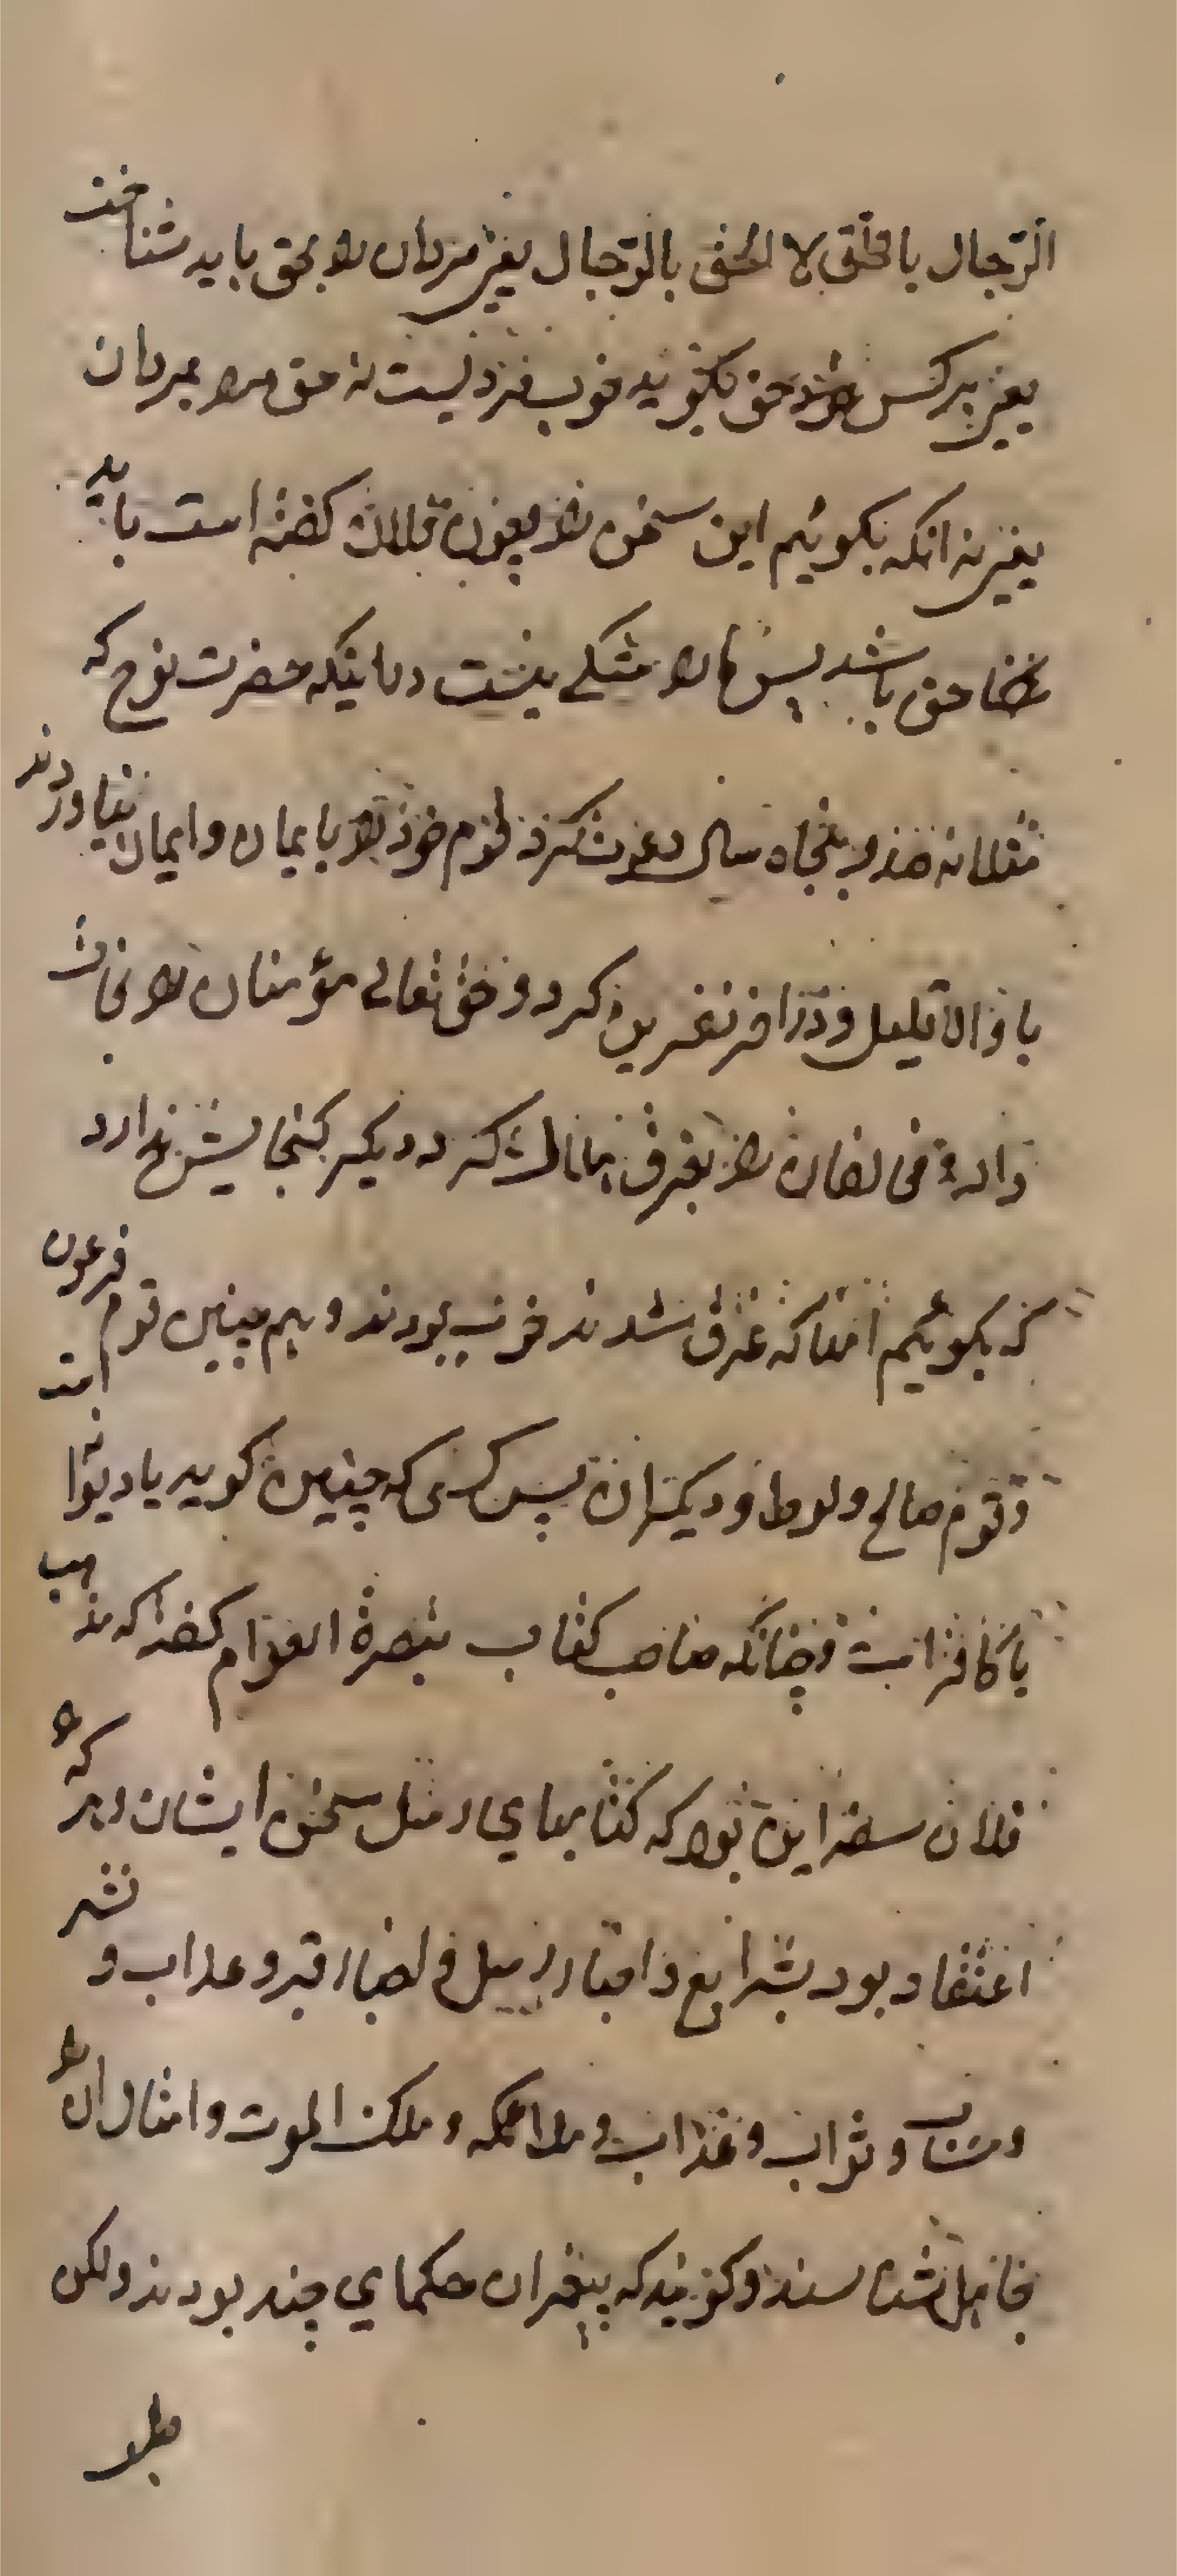 الرجال بالحق لا الحق بالرجال یعنی مردان را بحق باید شناخت
یعنی هر کس را که حق بگوید خوب مردیست نه حق را بمردان
یعنی نه انکه بکوئیم این سخن را چون فلان کفته است باید
حق باشد پس ما را مشکلی نیست در اینکه حضرت نوح که
مثلا نه صد و پنجاه سال دعوت کرد قوم خود را بایمان و ایمان نیاوردند
با و الا قلیل و در اخر نفرین کرد و حق تعالی مؤمنان را نجات
داد و مخالفان را بغرق هلاک کرد دیکر کنجایش ندارد
که بکوئیم انها که غرق شدند خوب بودند و هم چنین قوم فرعون
و قوم صالح و لوط و دیکران پس کسی که چنین کوید یا دیوانه است
یا کافر است و چنانکه صاحب کتاب تبصرة العوام کفته که مذهب
فلان سفر این بود که کتابهای و مثل سخن ایشان و هر که را
اعتقاد بود بشرایع و انبیا و رسل و احیاء قبر و عذاب و نشر
و حساب و ثواب و عذاب و ملائکه و ملک الموت و امثال ان را
جاهل شناسند و کویند که پیغمبران حکمای چند بودند ولکن